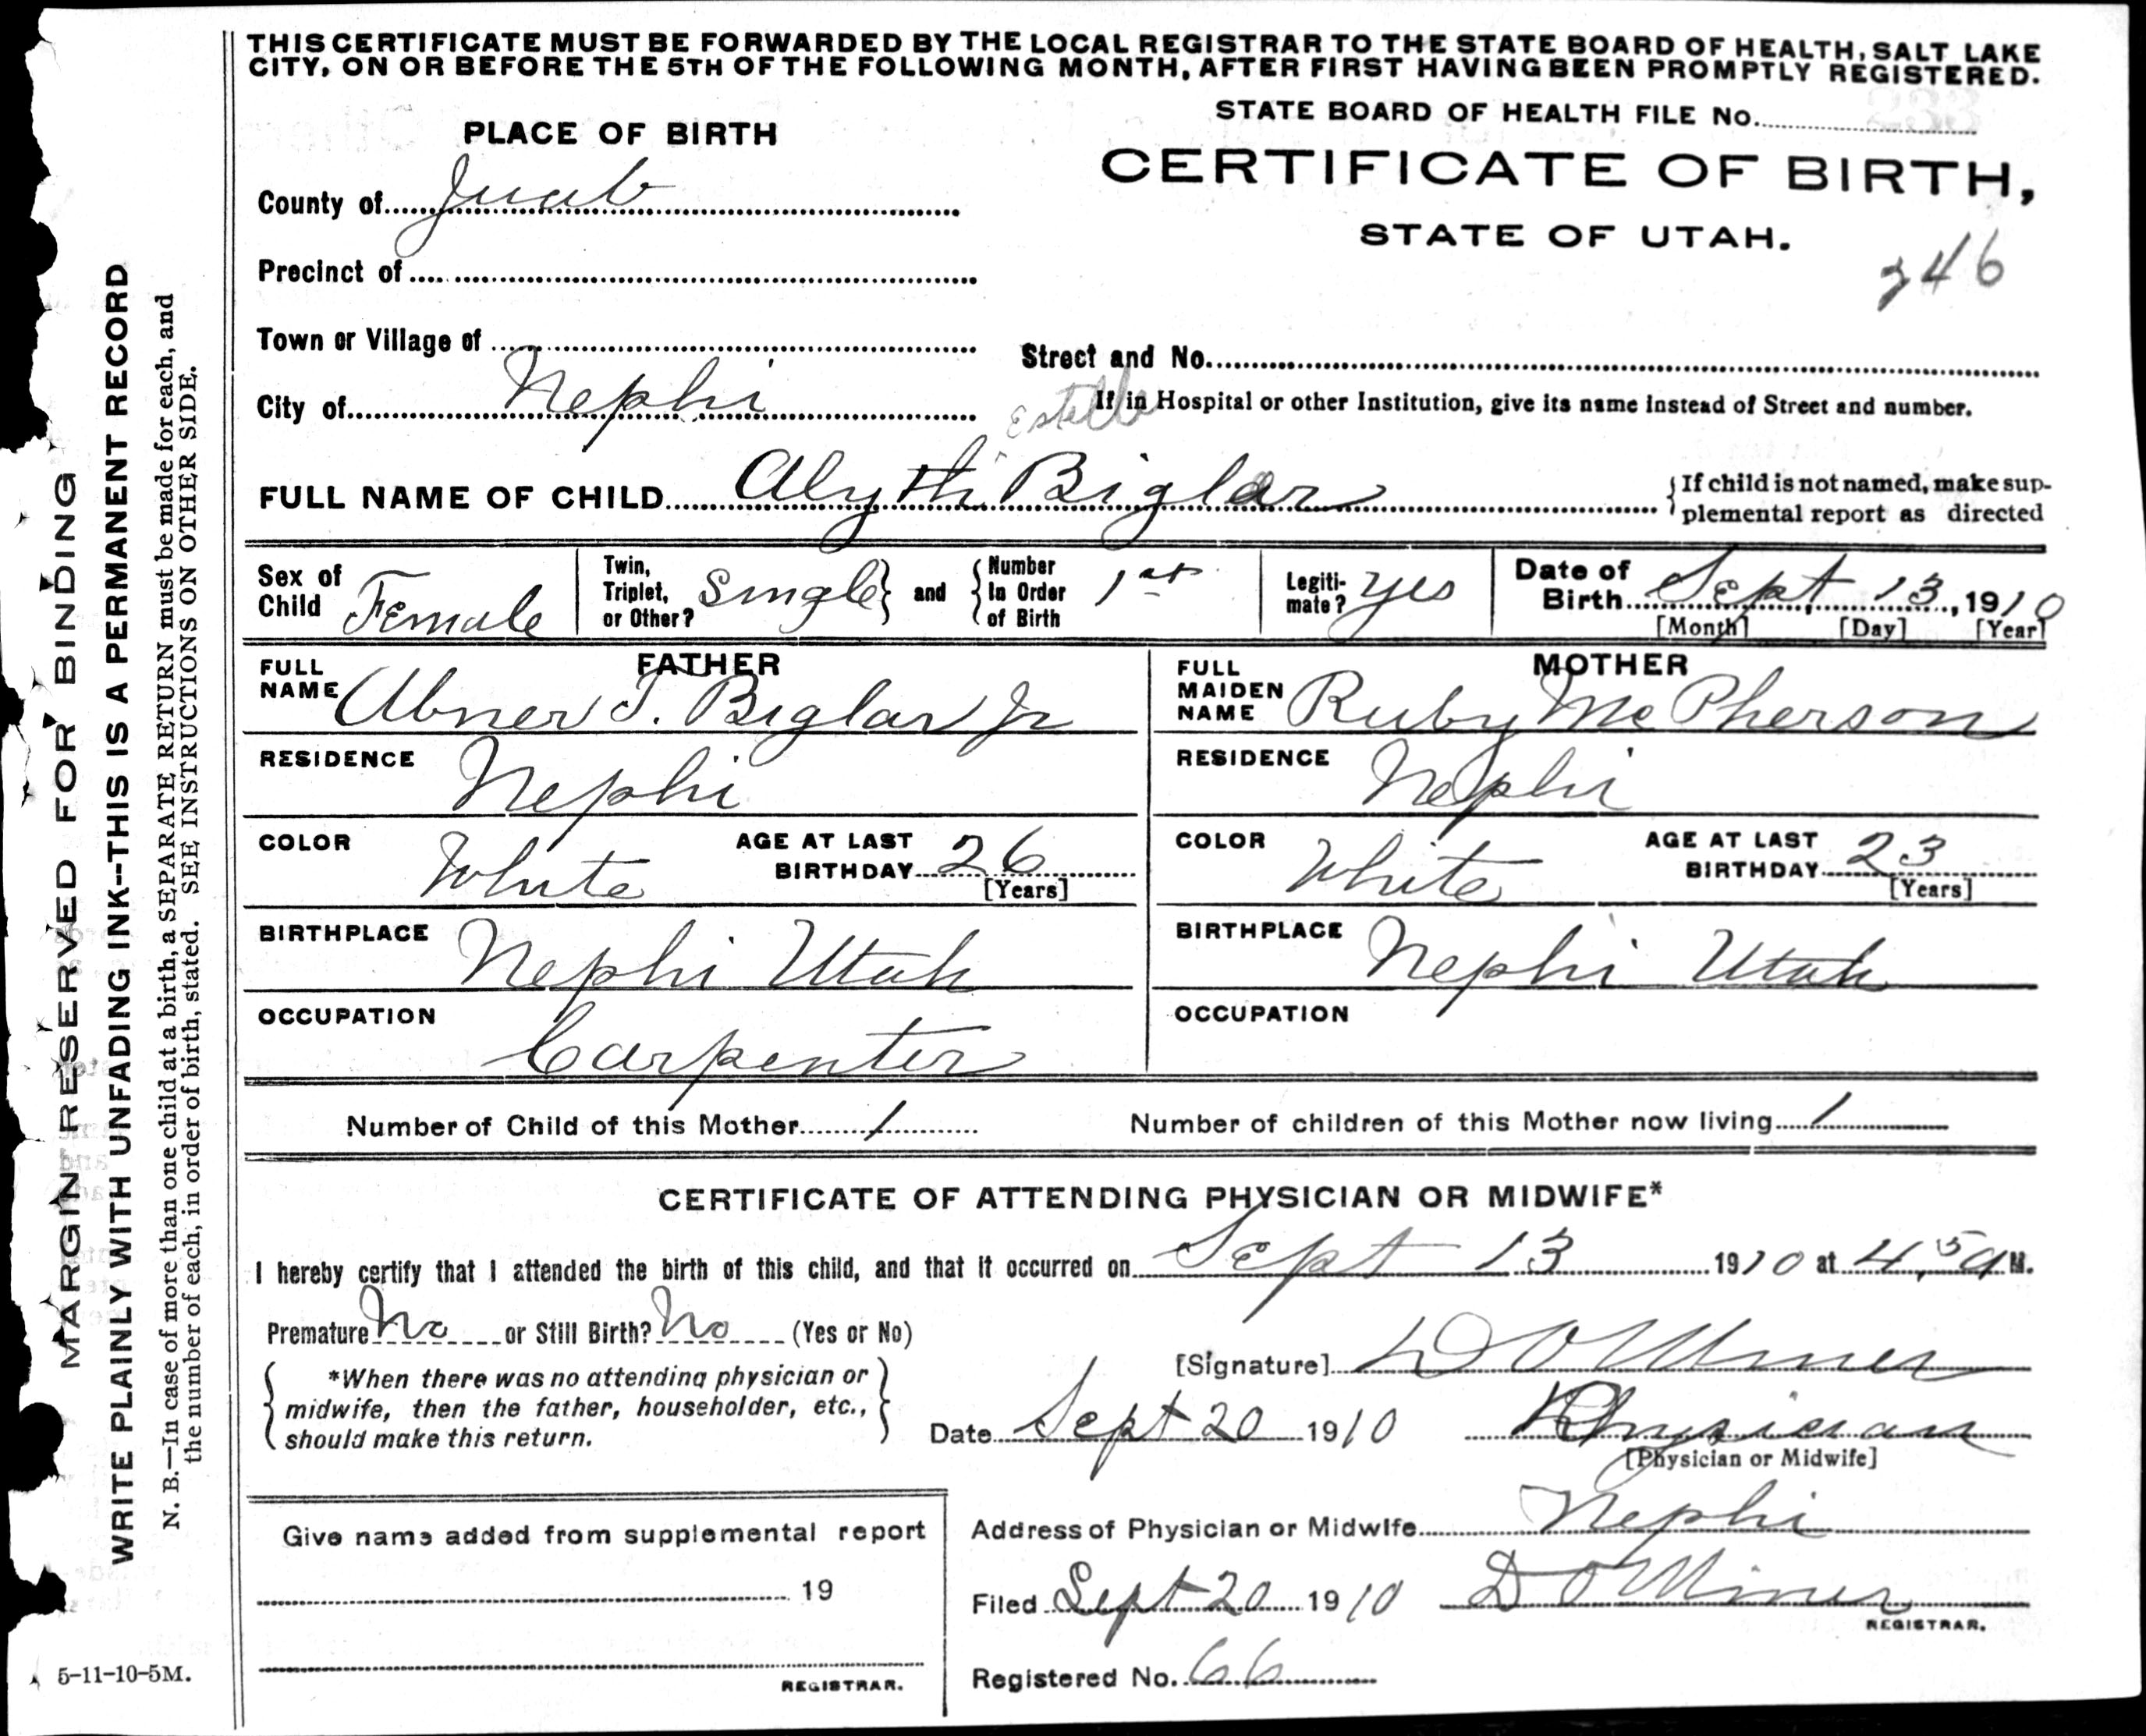 THIS CERTIFICATE MUST BE FORWARDED BY THE LOCAL REGISTRAR TO THE STATE BOARD OF HEALTH, SALT LAKE
CITY, ON OR BEFORE THE 5TH OF THE FOLLOWING MONTH, AFTER FIRST HAVING BEEN PROMPTLY REGISTERED.
STATE BOARD OF HEALTH FILE No.
PLACE OF BIRTH
CERTIFICATE OF BIRTH,
STATE OF UTAH.
246
County of Juab
Precinct of
Town or Village of
Street and No.
City of Nephi
If in Hospital or other Institution, give its name instead of Street and number.
Estella
FULL NAME OF CHILD Alyth Biglar
If child is not named, make sup-
plemental report as directed
Sex of Child Female
Twin, Triplet, or Other? Single and Number In Order of Birth 1st
Legiti-mate? yes
Date of Birth Sept 13, 1910
[Month] [Day] [Year]
FATHER
FULL NAME Abner T. Biglar Jr
RESIDENCE Nephi
COLOR White AGE AT LAST BIRTHDAY 26
[Years]
BIRTHPLACE Nephi Utah
OCCUPATION Carpenter
MOTHER
FULL MAIDEN NAME Ruby McPherson
RESIDENCE Nephi
COLOR White AGE AT LAST BIRTHDAY 23
[Years]
BIRTHPLACE Nephi Utah
OCCUPATION
Number of Child of this Mother 1 Number of children of this Mother now living 1
CERTIFICATE OF ATTENDING PHYSICIAN OR MIDWIFE*
I hereby certify that I attended the birth of this child, and that it occurred on Sept 13 1910 at 4,5 a M.
Premature No or Still Birth? No (Yes or No)
*When there was no attending physician or
midwife, then the father, householder, etc.,
should make this return.
[Signature] D O Miner
Date Sept 20 1910 Physician
[Physician or Midwife]
Give name added from supplemental report
19
REGISTRAR.
Address of Physician or Midwife Nephi
Filed Sept 20 1910 D O Miner
REGISTRAR.
Registered No. 66
MARGIN RESERVED FOR BINDING
WRITE PLAINLY WITH UNFADING INK--THIS IS A PERMANENT RECORD
N. B.—In case of more than one child at a birth, a SEPARATE RETURN must be made for each, and
the number of each, in order of birth, stated. SEE INSTRUCTIONS ON OTHER SIDE.
5-11-10-5M.